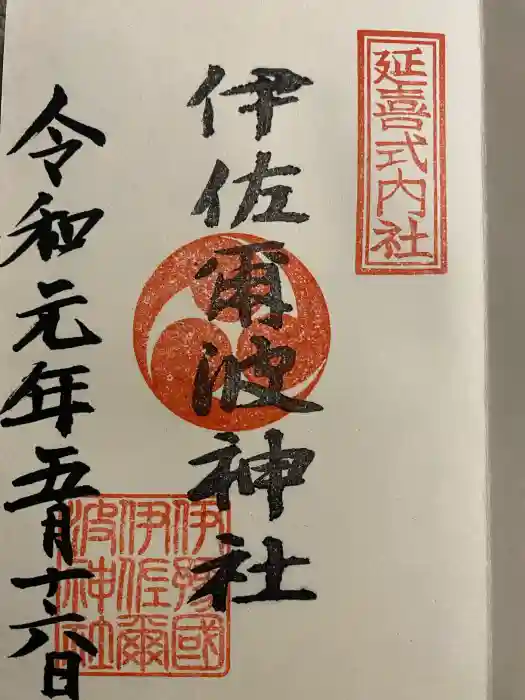 延喜式内社
伊佐爾波神社
伊予國
伊佐爾
波神社
令和元年五月十六日